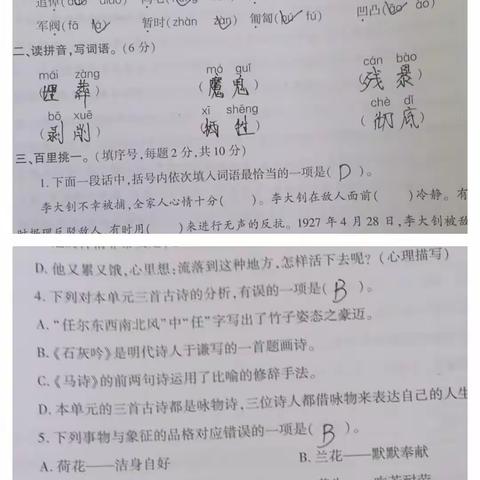 军阀(fā 暂时(zhàn zàn) 匍匐(bú fú) 凹凸(
二、读拼音,写词语。(6分)
mái zàng mó guǐ cán bào
(埋 葬) (魔 鬼) (残 暴)
bō xuē xī shēng chè dǐ
(剥 削) (牺 牲) (彻 底)
三、百里挑一。(填序号,每题2分,共10分)
1.下面一段话中,括号内依次填入词语最恰当的一项是( D )。
李大钊不幸被捕,全家人心情十分( )。李大钊在敌人面前( )冷静。有
时抿理反驳敌人,有时用( )来进行无声的反抗。1927年4月28日,李大钊被敌
D. 他又累又饿,心里想:流落到这种地方,怎样活下去呢?(心理描写)
4. 下列对本单元三首古诗的分析,有误的一项是( B )。
A. “任尔东西南北风”中“任”字写出了竹子姿态之豪迈。
B.《石灰吟》是明代诗人于谦写的一首题画诗。
C.《马诗》的前两句诗运用了比喻的修辞手法。
D. 本单元的三首古诗都是咏物诗,三位诗人都借咏物来表达自己的人生
5. 下列事物与象征的品格对应错误的一项是( B )。
A. 荷花——洁身自好 B. 兰花——默默奉献